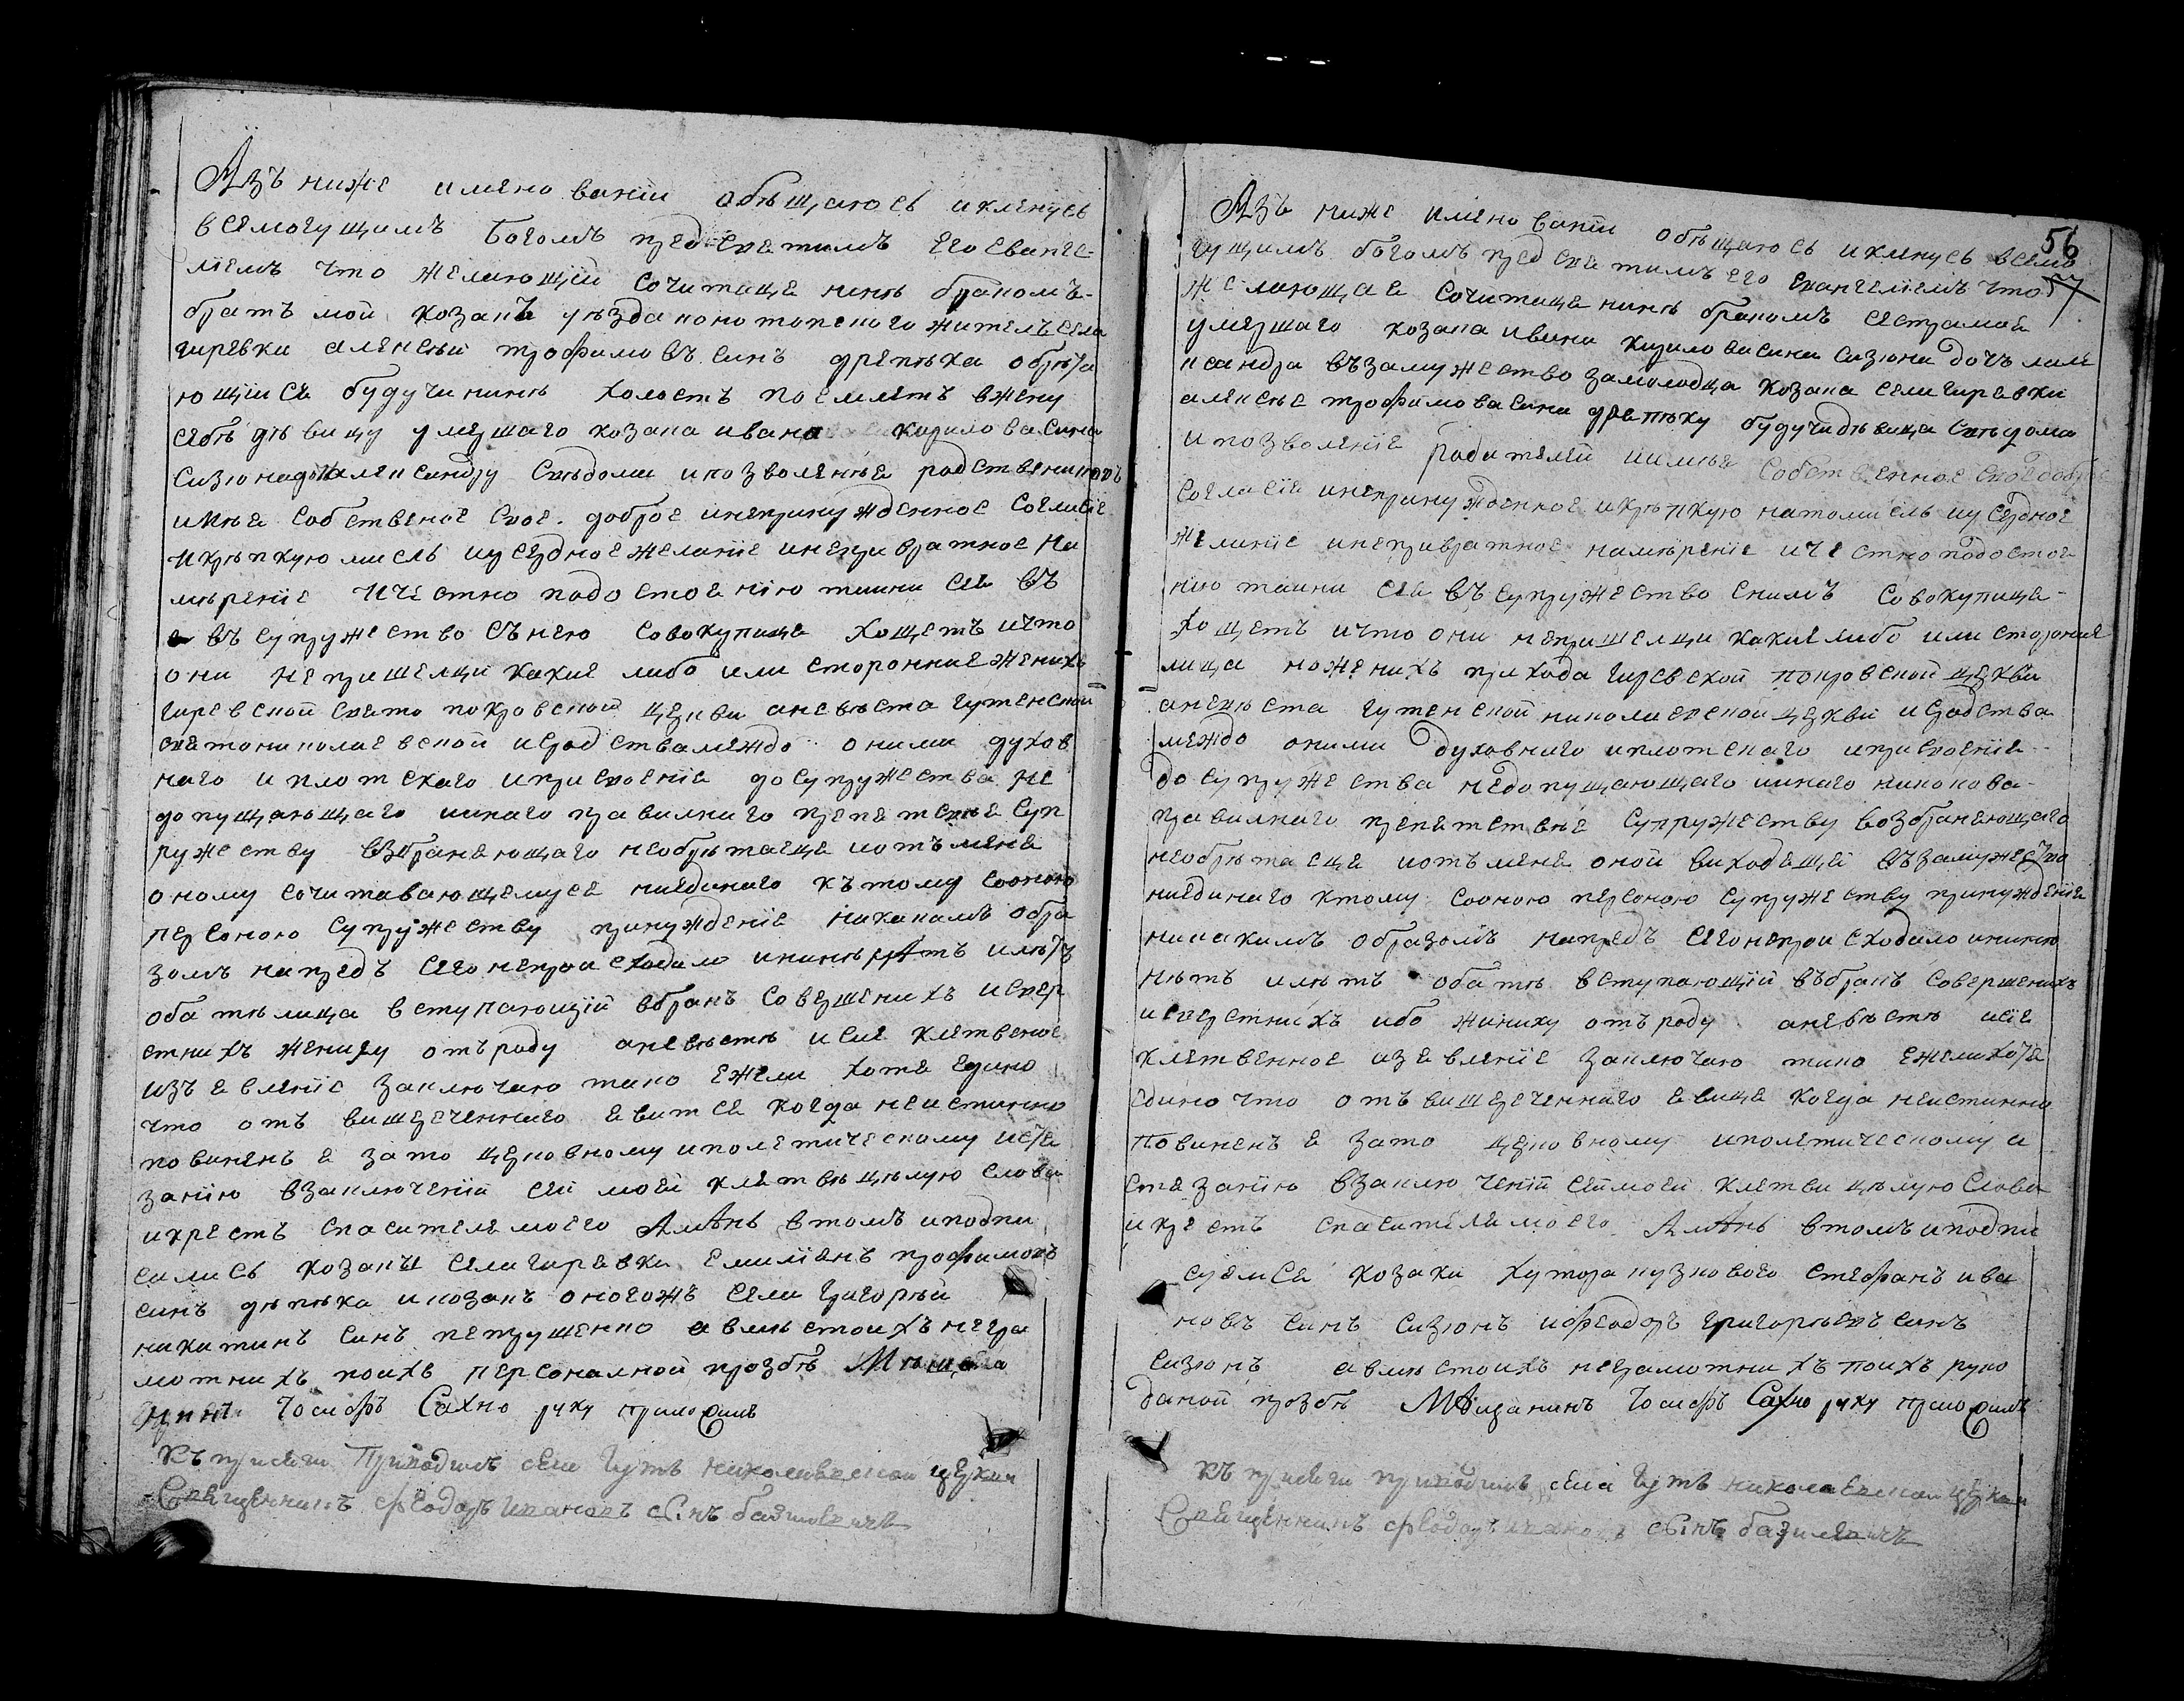 Азъ ниже имено ванїи обѣщаюсь иклянусь
всемогущимъ Богомъ пред святимъ его евангел-
лїемъ что желающїй сочитаця нинѣ бракомъ-
братъ мой козакъ уѣзда конотопского жителъ села
гиревки алексѣй трофимовъ синъ обрѣта
ющїися будучи нинѣ холостъ поемлетъ вжену
себѣ дѣвицу умершаго козака ивана кирилова сина
сизона дочь александру свѣдома ипозволенѣя родственниковъ
имѣя собственое свое. доброе инепринужденное согласїе
икрѣпкую мисль иусердное желанїе инепривратное на
мѣренїе ичестно подостоянїю таини сея въ
въ супружество сънею совокупиця хощетъ ичто
они непришелци какие либо или сторонние женихъ
гиревской свято покровской церкви аневѣста гутенской
святониколаевской исродства междо оними духов
наго иплотскаго иприсвоенїя досупружества не
допущающаго иинаго правилнаго препятствѣя суп
ружеству взбраняющаго необрѣтаеця иотъ мене
оному сочитавающемуся ниединаго кътому сооною
персоною супружеству принужденїя никакимъ обра
зомъ напредъ сего непроисходило ининѣ нѣтъ имѣтъ
оба тѣ лица вступающїй вбракъ совершенихъ исвер
стнихъ жениху отъ роду аневѣстѣ исие клятвеное
изъявленїе заключаю тако ежели хотя едино
что отъ вишереченнаго явится когда неистинно
повиненъ я зато церковному иполетическому истя
занїю взаключенїи сей моей клятвы цѣлую слова
икрестъ спасителя моего Аминь втомъ иподпи
сались козаки села гиревки емилїанъ трофимовъ
синъ икозакъ оногожъ села григорѣй
никитинъ синъ петрушенко авмѣстоихъ негра
мотнихъ поихъ персоналной прозбѣ Мѣщана
нинъ Iосифъ Сахно руку приложилъ
Къ присяги приводилъ села гутъ николаевской церкви
Священникъ феодоръ ивановъ синъ базилевичъ
56
57
Азъ ниже имено ванїи обѣщаюсь иклянусь всемо
гущимъ богомъ пред святимъ его евангелїемъ что
желающая сочитаця нинѣ бракомъ сестрамоя
умершаго козака ивана кирилова сина сизона дочъ алек
сандра възамужество замолодца козака села гиревки
алексѣя трофимова сина будучи дѣвица свѣдома
ипозволенїе родителей иимѣя собственное свое доброе
согласїе инепринужденное икрѣпкую натомисль иусердное
желанїе инепривратное намѣренїе ичестно подостоя
нїю таини сея въ супружество снимъ совокупиця-
хощетъ ичто они непришелци какие либо или сторонние
лица но женихъ прихода гиревской покровской церкви
аневѣста гутенской николаевской церкви исродства
междо оними духовнаго иплотскаго иприсвоенїя-
до супружества недопущающаго иинаго никокова-
правилнаго препятствѣе супружеству возбраняющаго
необрѣтаеця иотъ мене оной виходящей възамужество
ниединаго ктому сооною персоною супружеству принужденїя
никакимъ образомъ напредъ сегонепроисходило ининѣ
нѣтъ имѣтъ обатѣ вступающїй въбракъ совершенихъ
исверстнихъ ибо жениху отъ роду аневѣстѣ исїе
клятвенное изявленїе заключаю тако ежели хотя
едино что отъ вишереченнаго явиця когда неистинно
повиненъ я зато церковному иполетическому и
стязанїю взаключенїй сеймоей клятви цѣлую слова
икрестъ спасителя моего Аминь втомъ иподпи
суемся козаки хутора кузнового стефанъ ива
новъ синъ сизонъ ифеодоръ григорѣевъ синъ
сизонъ авмѣстоихъ неграмотнихъ поихъ руко
даной прозбѣ Мѣщанинъ Iосифъ Сахно руку приложилъ
Къ присяги приводилъ села гутъ николаевской церкви
Священникъ феодоръ ивановъ синъ базилевичъ